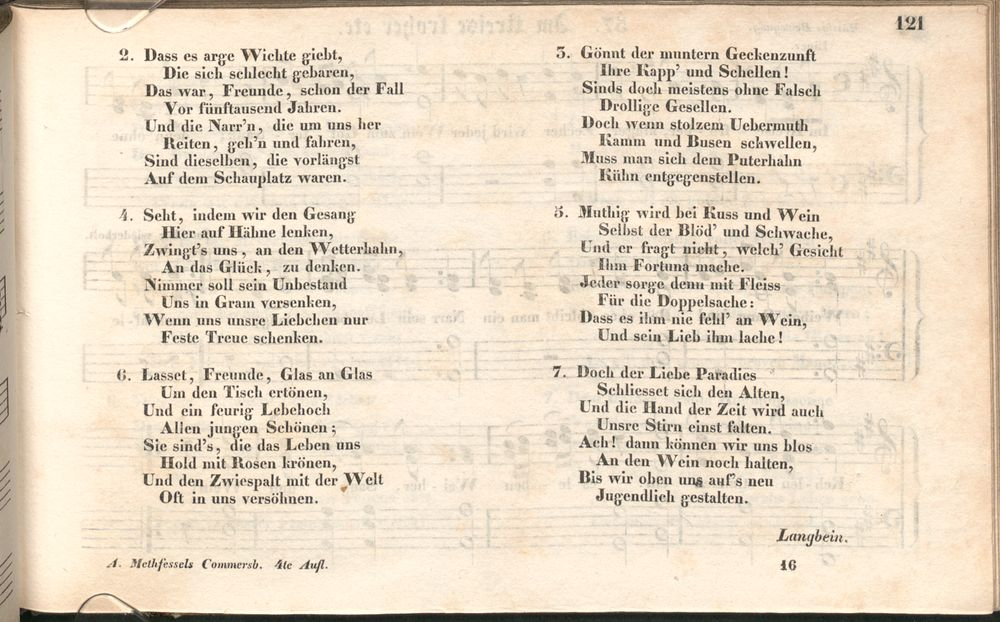 121
2. Dass es arge Wichte giebt,
Die sich schlecht gebaren,
Das war, Freunde, schon der Fall
Vor fünftausend Jahren.
Und die Narr'n, die um uns her
Reiten, geh'n und fahren,
Sind dieselben, die vorlängst
Auf dem Schauplatz waren.
3. Gönnt der muntern Geckenzunft
Ihre Kapp' und Schellen!
Sinds doch meistens ohne Falsch
Drollige Gesellen.
Doch wenn stolzem Uebermuth
Kamm und Busen schwellen,
Muss man sich dem Puterhahn
Kühn entgegenstellen.
4. Seht, indem wir den Gesang
Hier auf Hähne lenken,
Zwingt's uns, an den Wetterhahn,
An das Glück, zu denken.
Nimmer soll sein Unbestand
Uns in Gram versenken,
Wenn uns unsre Liebchen nur
Feste Treue schenken.
5. Muthig wird bei Kuss und Wein
Selbst der Blöd' und Schwache,
Und er fragt nicht, welch' Gesicht
Ihm Fortuna mache.
Jeder sorge denn mit Fleiss
Für die Doppelsache:
Dass es ihm nie fehl' an Wein,
Und sein Lieb ihm lache!
6. Lasset, Freunde, Glas an Glas
Um den Tisch ertönen,
Und ein feurig Lebehoch
Allen jungen Schönen;
Sie sind's, die das Leben uns
Hold mit Rosen krönen,
Und den Zwiespalt mit der Welt
Oft in uns versöhnen.
7. Doch der Liebe Paradies
Schliesset sich den Alten,
Und die Hand der Zeit wird auch
Unsre Stirn einst falten.
Ach! dann können wir uns blos
An den Wein noch halten,
Bis wir oben uns auf's neu
Jugendlich gestalten.
Langbein.
A. Methfessels Commersb. 4te Aufl.
16